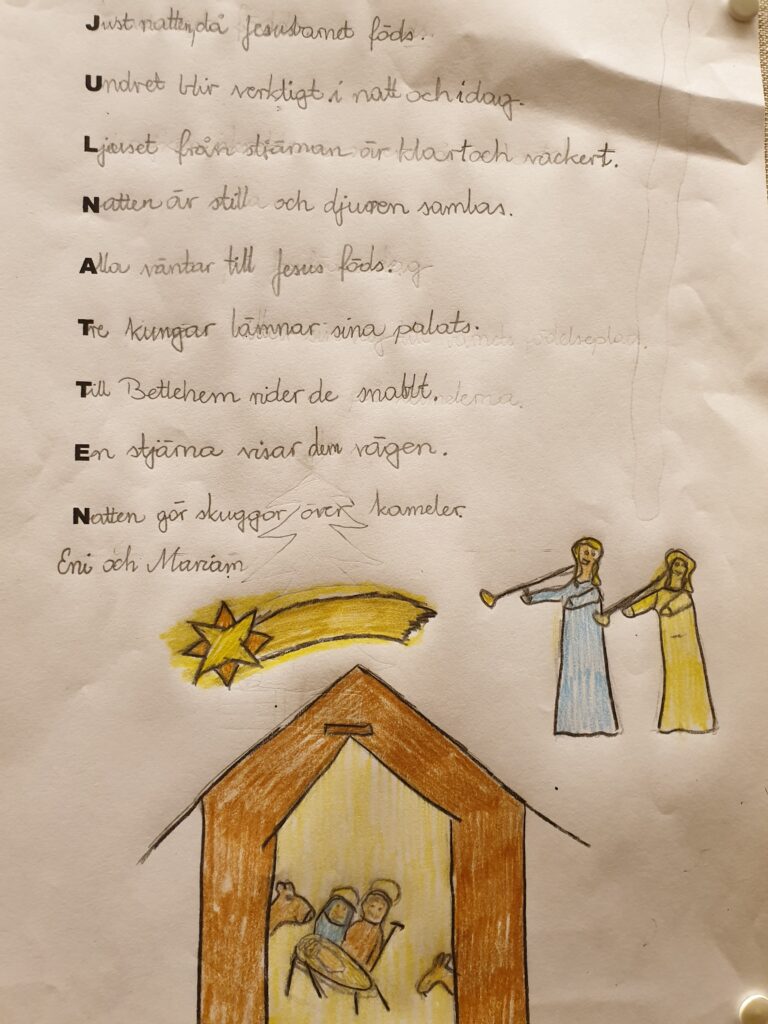 Just natten, då Jesusbarnet föds.
Undret blir verkligt i natt och idag.
Ljuset från stjärnan är klart och vackert.
Natten är still och djuren samlas.
Alla väntar till Jesus föds.
Tre kungar lämnar sina palats.
Till Betlehem rider de snabbt.
En stjärna visar dem vägen.
Natten gör skuggor över kameler.
Eni och Mariam